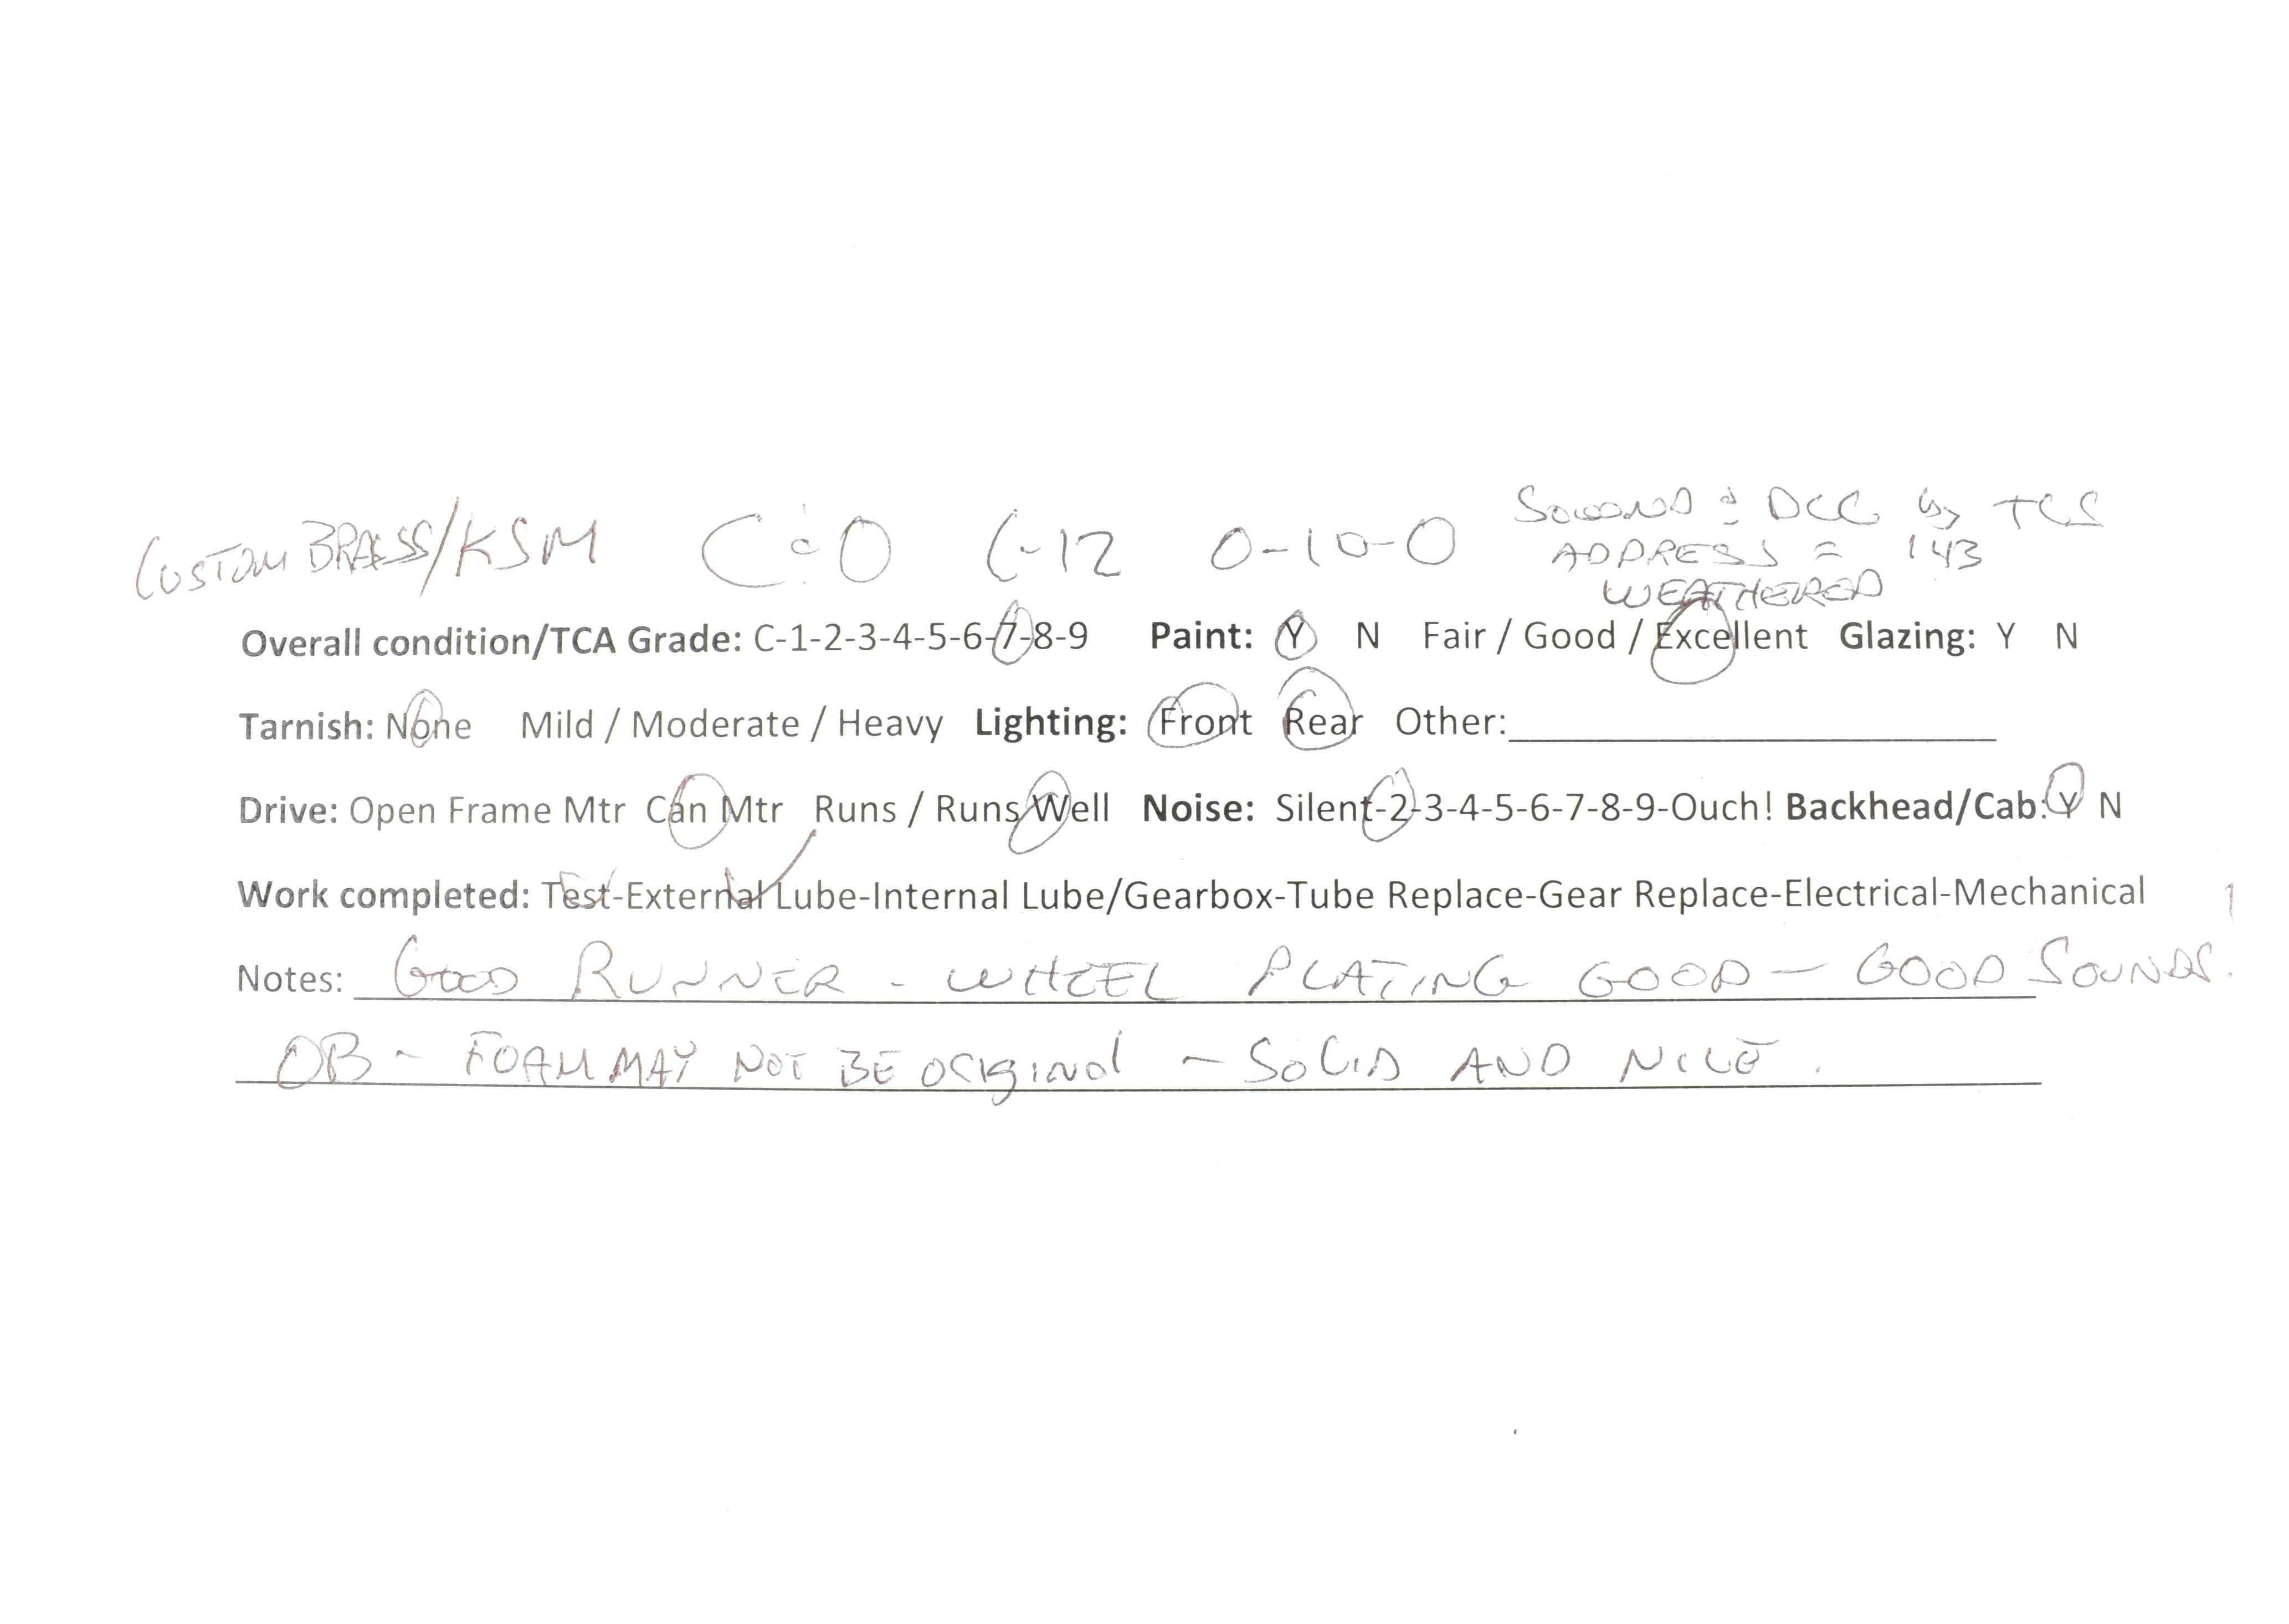 CUSTOM BRASS/KSM C&O C-12 0-10-0 SOUND & DCC by TCS
ADDRESS = 143
WEATHERED
Overall condition/TCA Grade: C-1-2-3-4-5-6-7-8-9 Paint: Y N Fair / Good / Excellent Glazing: Y N
Tarnish: None Mild / Moderate / Heavy Lighting: Front Rear Other:
Drive: Open Frame Mtr Can Mtr Runs / Runs Well Noise: Silent-2-3-4-5-6-7-8-9-Ouch! Backhead/Cab: Y N
Work completed: Test-External Lube-Internal Lube/Gearbox-Tube Replace-Gear Replace-Electrical-Mechanical
Notes: GOOD RUNNER - WHEEL PLATING GOOD - GOOD SOUNDS.
OB - FOAM MAY NOT BE ORIGINAL - SOLID AND NICE.